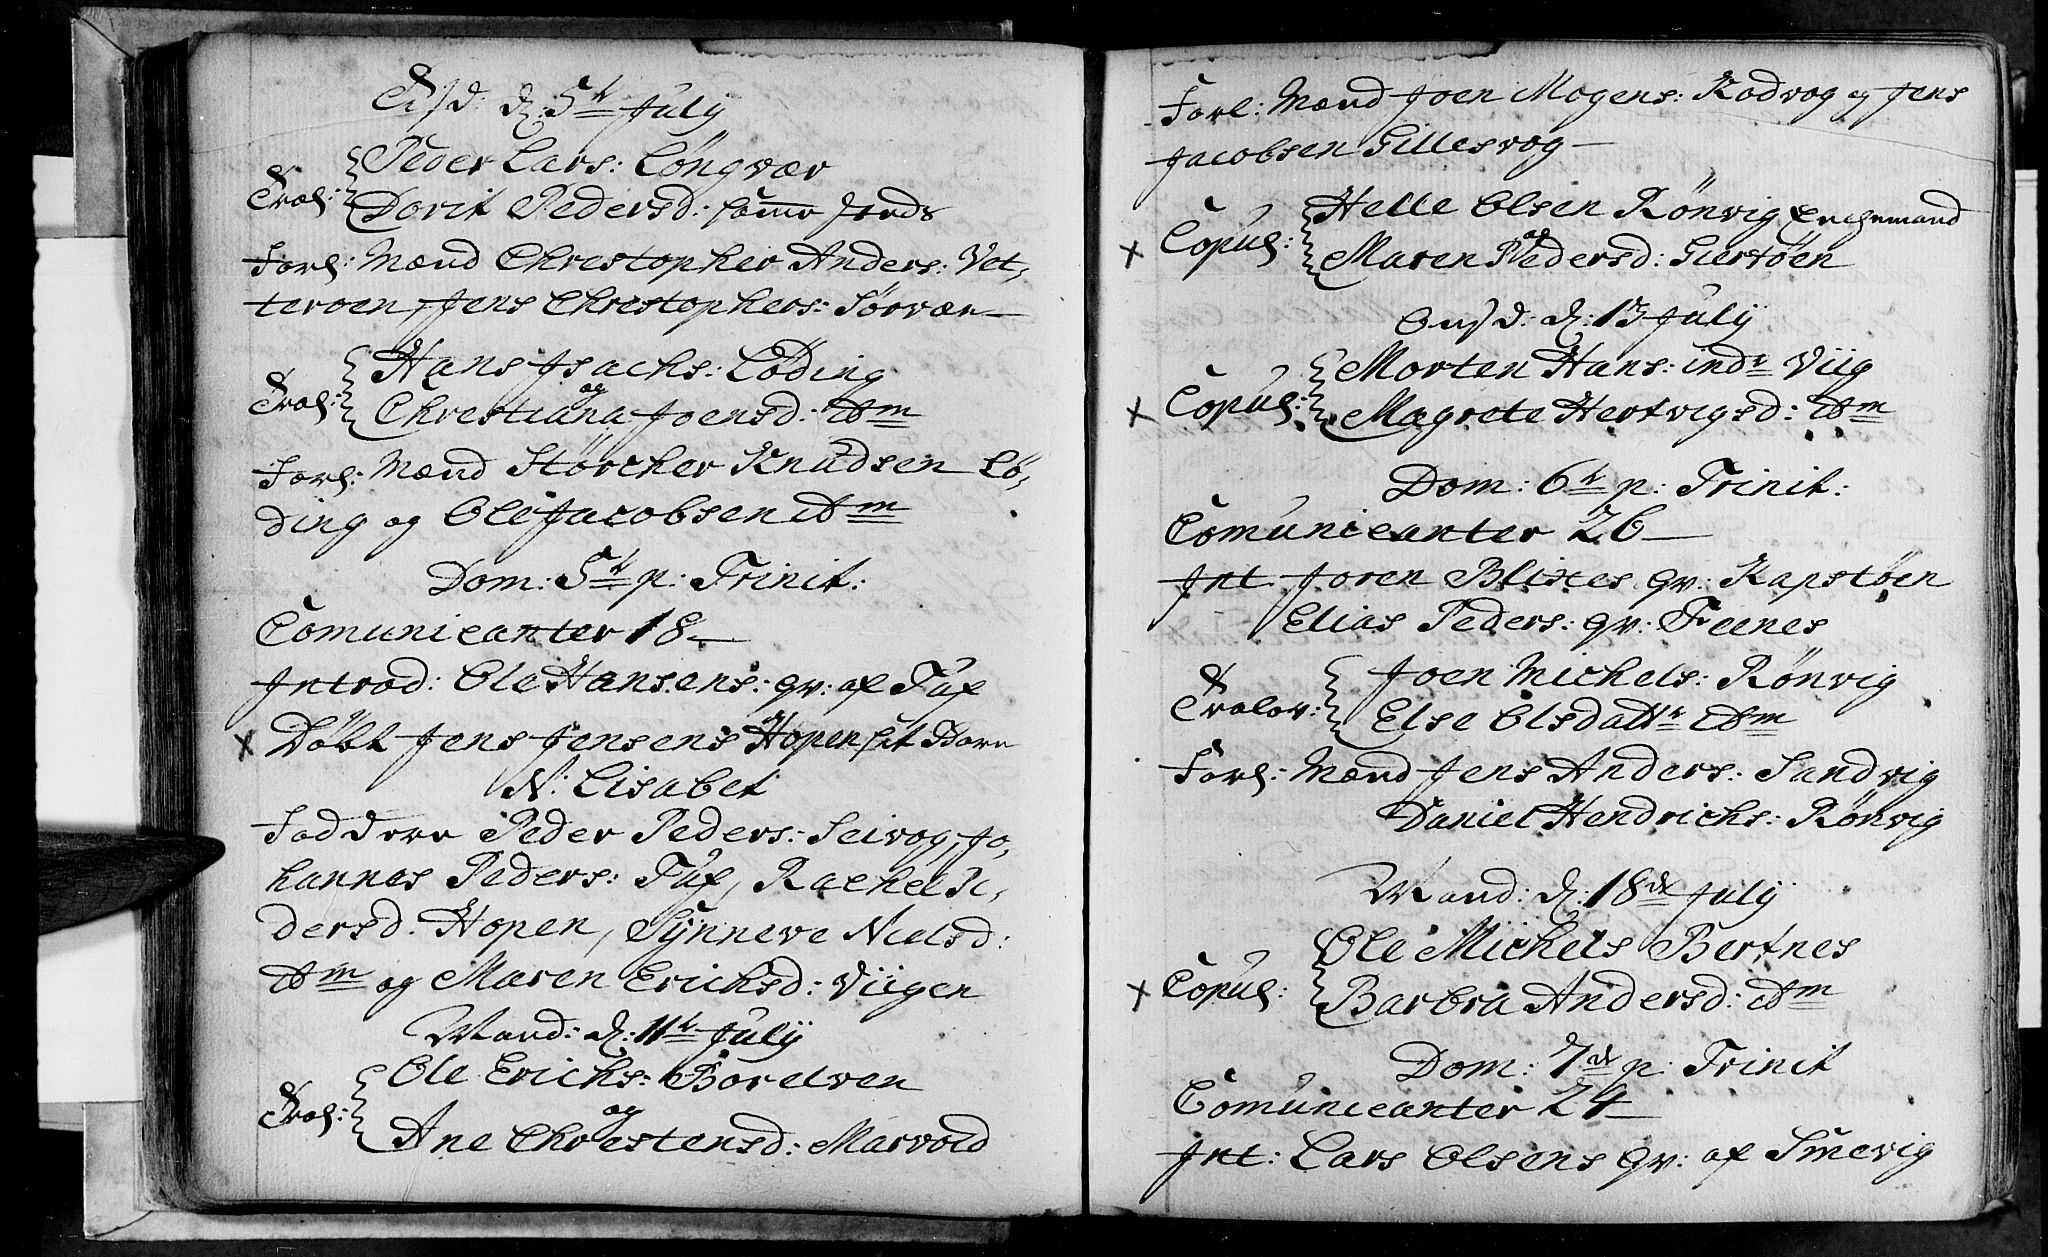 Tisd: d: 5te July
Peder Lars: Løngvær
Trol: Dorit Pedersd: samme steds
Forl: Mænd Chrestopher Anders: Vet,
teroen, Jens Chrestophers: Sørvær
Hans Jsachs: Løding
og
Trol: Chrestiana Joensd: ibm
Forl: Mænd Störcher Knudsen Lö,
ding og Ole Jacobsen ibm
Dom: 5te p: Trinit:
Comunicanter 18
Introd: Ole Hansens: qv: af Tuf
x Døbt Jens Jensens Hopen sit Barn
N: Lisabet
Faddere Peder Peders: Seivog, Jo,
hannes Peders: Tuf, Rachel Pe,
dersd: Hopen, Synneve Nielsd:
ibm og Maren Erichsd: Viigen
Mand: d: 11te July
Ole Erichs: Borelven
og
Trol: Ane Chrestensd: Marvold
Forl: Mænd Joen Mogens: Kodvog og Jens
Jacobsen Gillesvog
Helle Olsen Rönvig Enchemand
og
x Copul: Maren Pedersd: Giertøen
Onsd: d: 13 July
Morten Hans: indr Viig
x Copul: Magrete Hertvigsd: ibm
Dom: 6te p: Trinit:
Comunicanter 26
Int Joren Blixes qv: Kapstøen
Elias Peders: qv: Feenes
Joen Michels: Rönvig
Trolov: Else Olsdattr ibm
Forl: Mænd Jens Anders: Sandvig
Daniel Hendrichs: Rönvig
Mand: d: 18de July
Ole Michels Bertnes
x Copul: Barbra Andersd: ibm
Dom: 7de p: Trinit
Comunicanter 24
Int: Lars Olsens qv: af Smevig